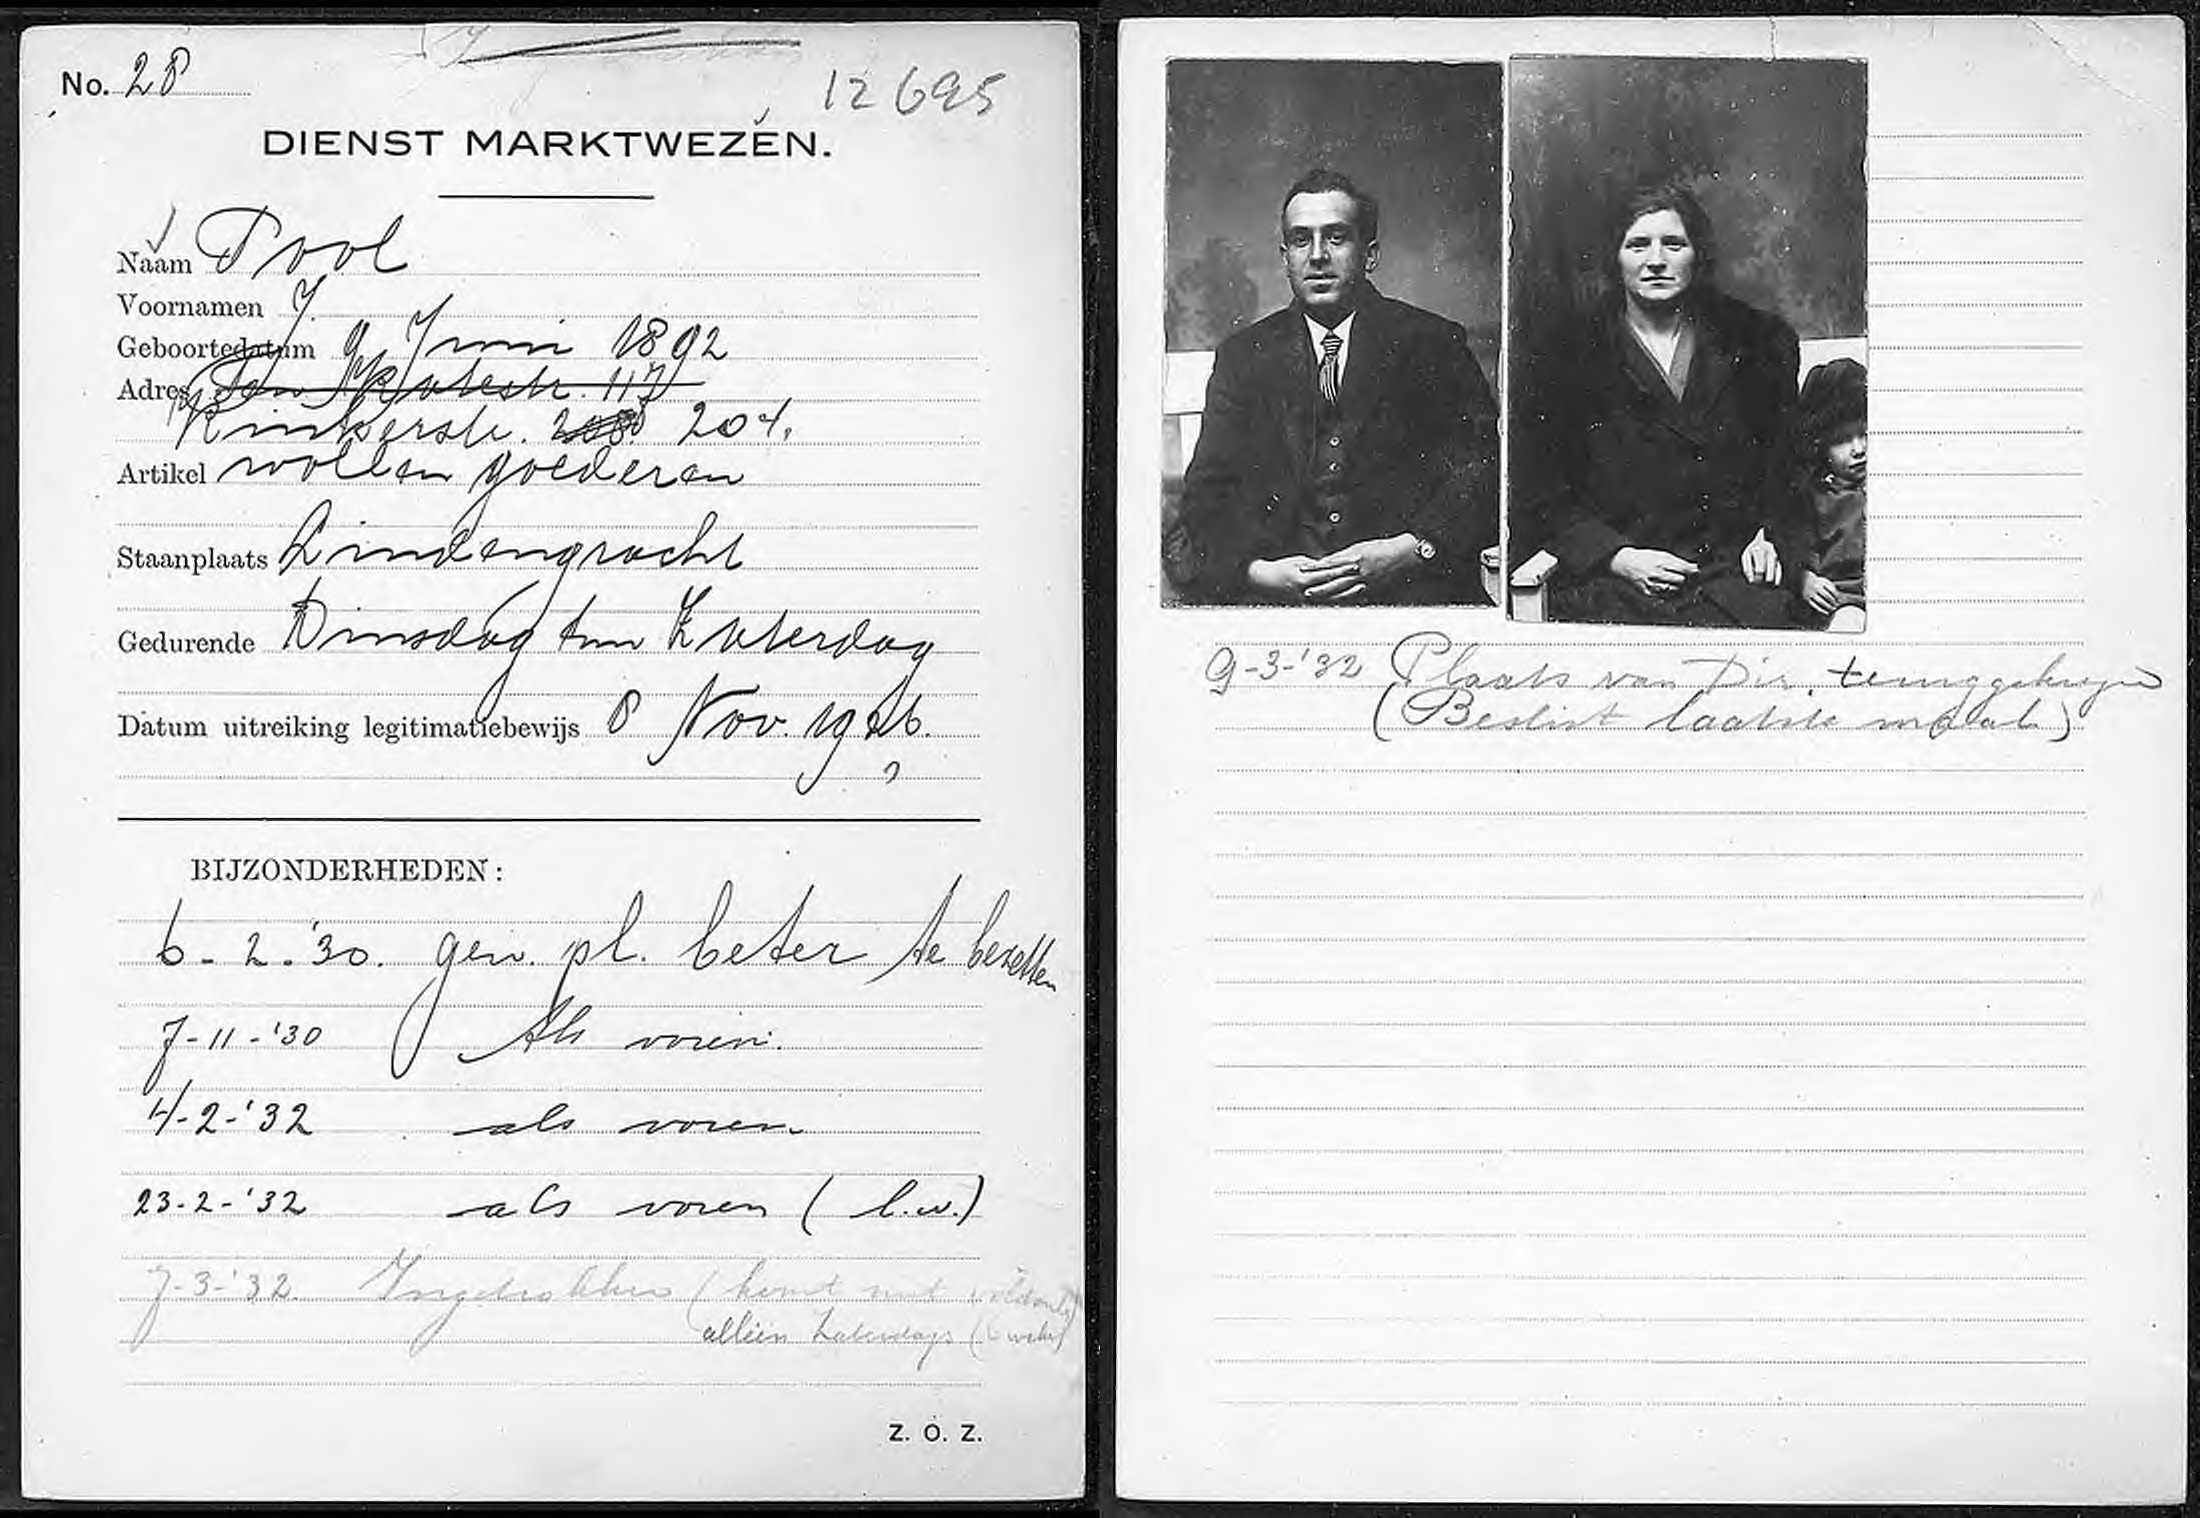 No. 28
12695
DIENST MARKTWEZEN.
Naam Pool
Voornamen J.
Geboortedatum 9 Juni 1892
Adres Ten Katestr. 117
Kinkerstr. 204.
Artikel wollen goederen
Staanplaats Lindengracht
Gedurende Dinsdag t/m Zaterdag
Datum uitreiking legitimatiebewijs 8 Nov. 1926.
BIJZONDERHEDEN:
6-2-'30. gew. pl. beter te bezetten
7-11-'30 Als voren.
4-2-'32 als voren
23-2-'32 als voren (l.w.)
7-3-'32. Ingetrokken (komt niet
alleen Zaterdags
Z. O. Z.
9-3-'32 Plaats van Dir. teruggekregen
(Beslist laatste maal)